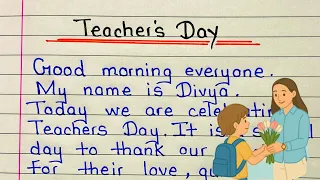 Teacher's Day
Good morning everyone.
My name is Divya.
Today we are cele
Teachers Day. It is
day to thank our
For their love,